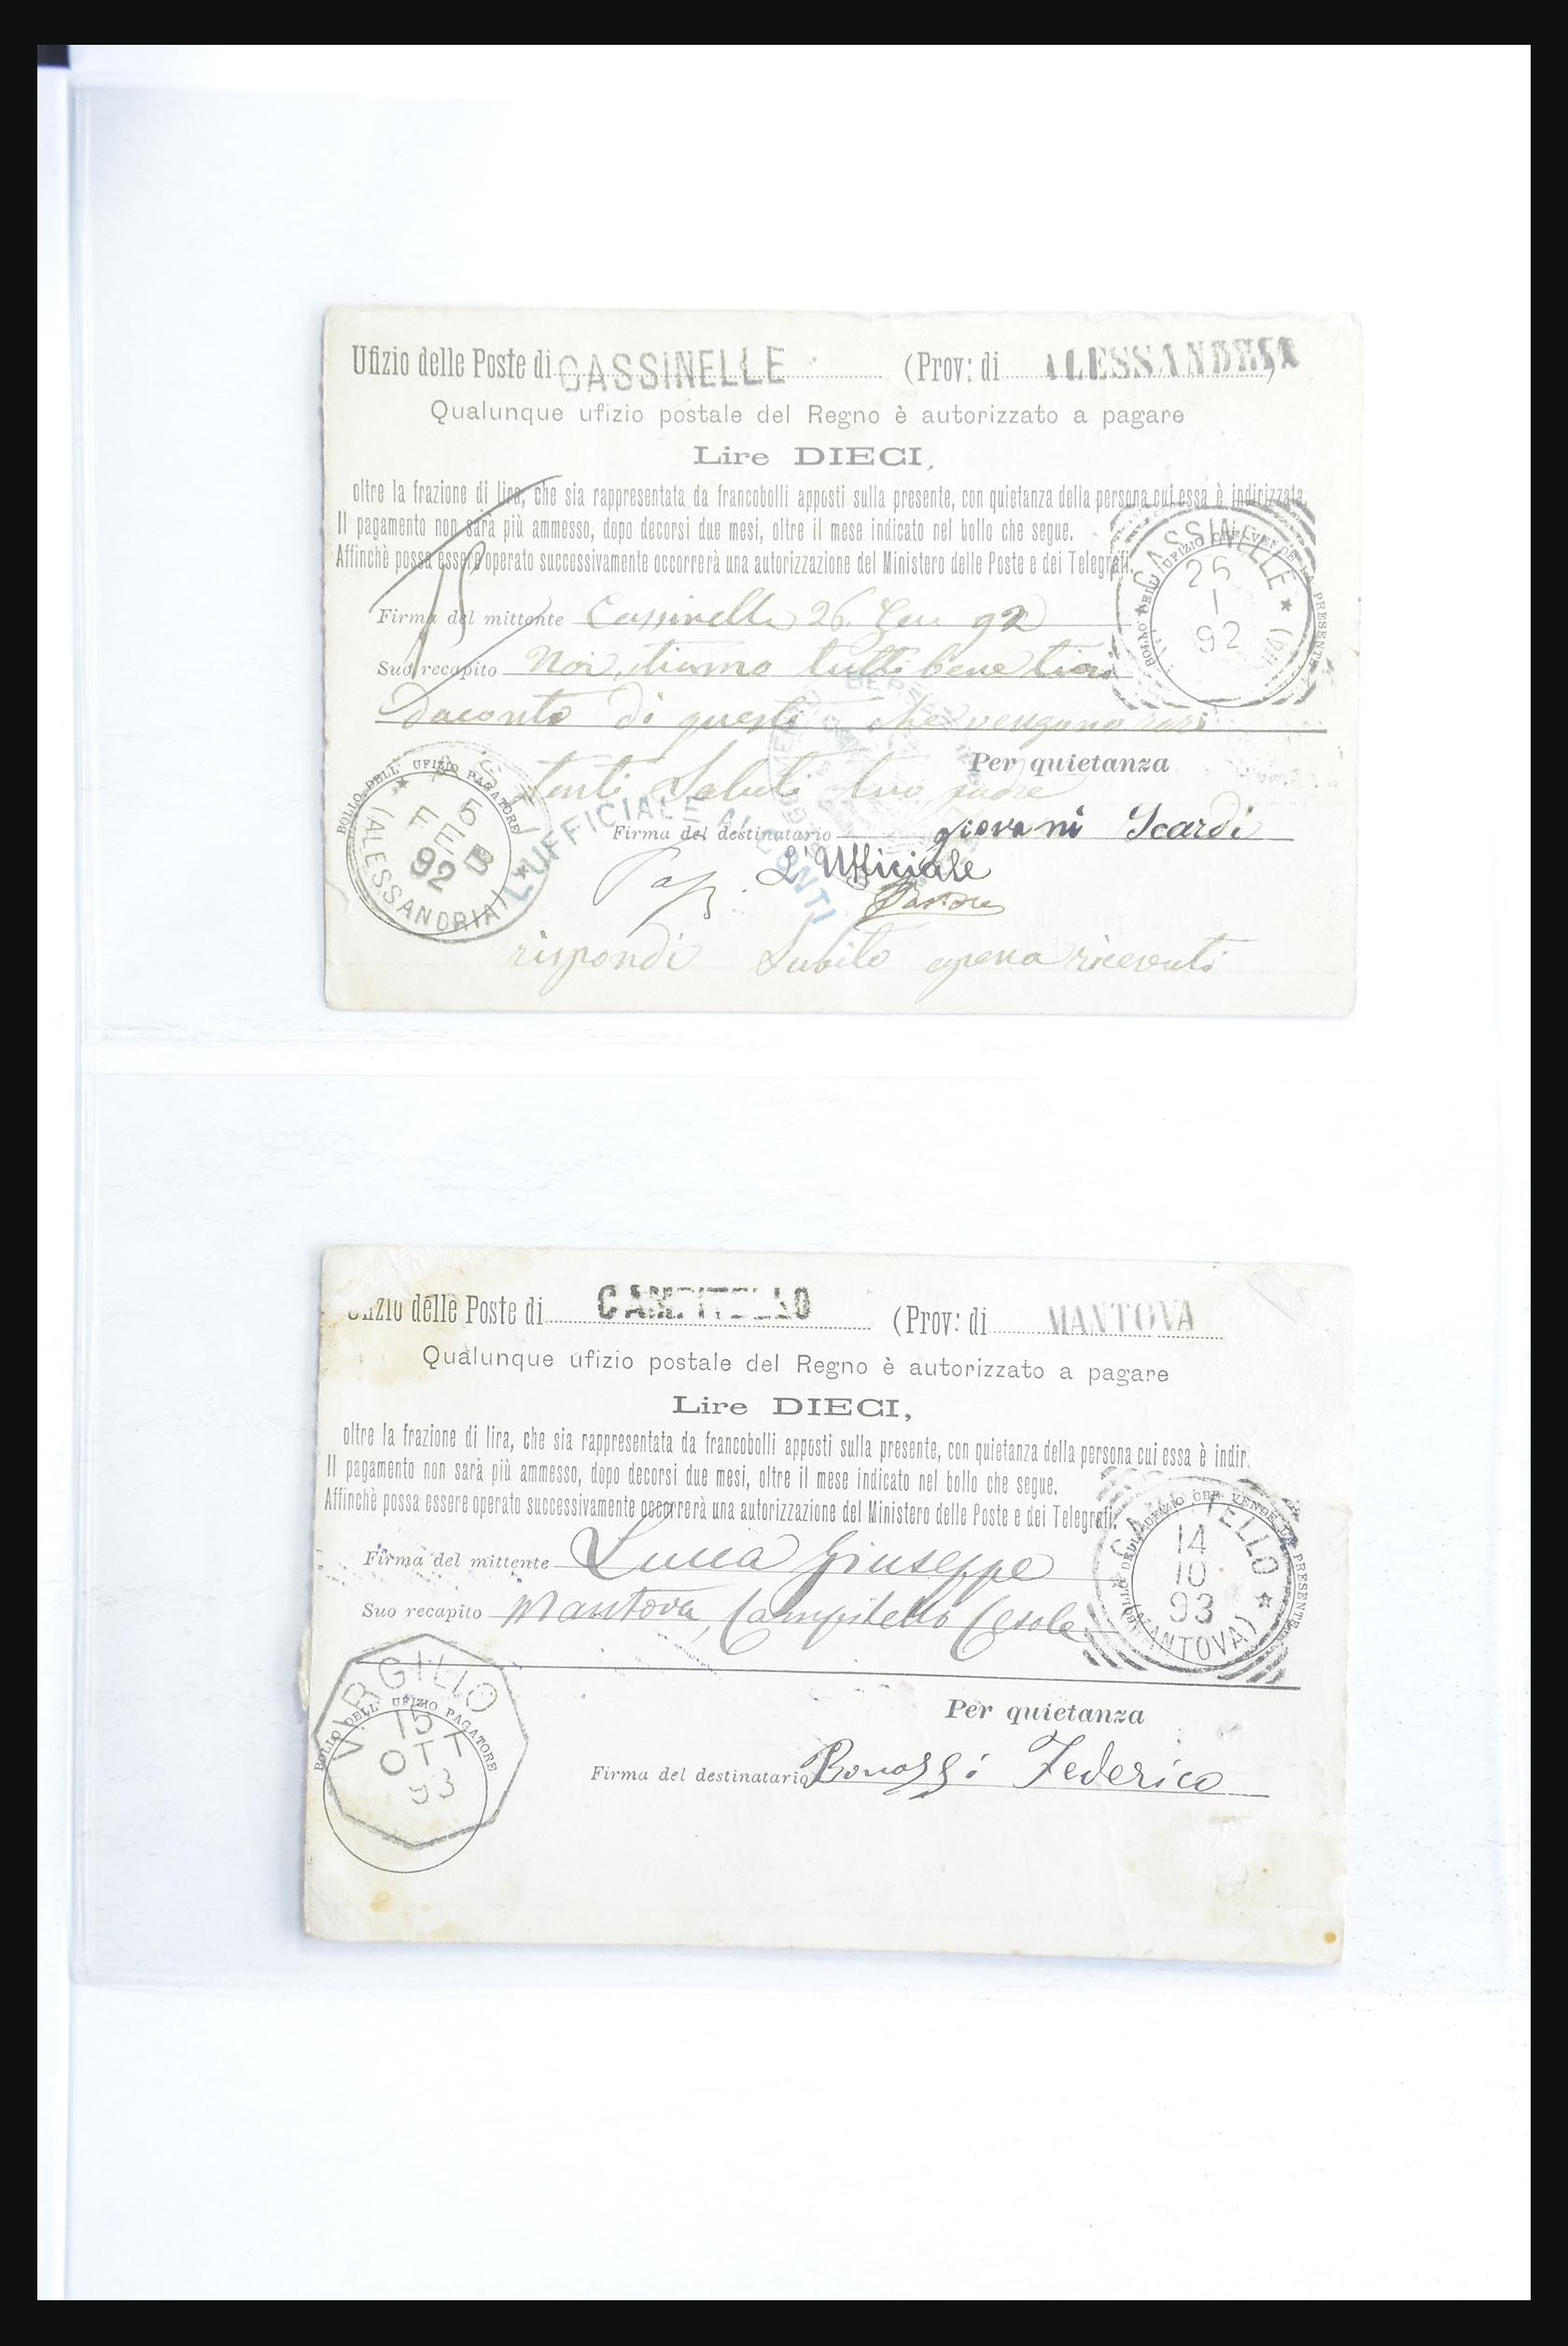 Ufizio delle Poste di CASSINELLE (Prov: di ALESSANDRIA)
Qualunque ufizio postale del Regno è autorizzato a pagare
Lire DIECI,
oltre la frazione di lira, che sia rappresentata da francobolli apposti sulla presente, con quietanza della persona cui essa è indirizzata.
Il pagamento non sarà più ammesso, dopo decorsi due mesi, oltre il mese indicato nel bollo che segue.
Affinchè possa essere operato successivamente occorrerà una autorizzazione del Ministero delle Poste e dei Telegrafi.
CASSINELLE
BOLLO DELL' UFIZIO CHE VENDE LA PRESENTE
26
1
92
Firma del mittente Cassinelle 26. 92
Suo recapito Noi stiamo tutti bene
daconto di questi che vengono
Per quietanza
Saluti tuo padre
BOLLO DELL' UFIZIO PAGATORE
5
FEB
92
(ALESSANDRIA)
L'UFFICIALE AI CONTI
Firma del destinatario giovani Scardi
L'Ufficiale
rispondi Subito apena ricevuti
Ufizio delle Poste di CAMPITELLO (Prov: di MANTOVA
Qualunque ufizio postale del Regno è autorizzato a pagare
Lire DIECI,
oltre la frazione di lira, che sia rappresentata da francobolli apposti sulla presente, con quietanza della persona cui essa è indir.
Il pagamento non sarà più ammesso, dopo decorsi due mesi, oltre il mese indicato nel bollo che segue.
Affinchè possa essere operato successivamente occorrerà una autorizzazione del Ministero delle Poste e dei Telegrafi.
CAMPITELLO
BOLLO DELL' UFIZIO CHE VENDE LA PRESENTE
14
10
93
(MANTOVA)
Firma del mittente Lucca Giuseppe
Suo recapito Mantova, Campitello Cesole
VIRGILIO
BOLLO DELL' UFIZIO PAGATORE
15
OTT
93
Per quietanza
Firma del destinatario Bonazzi Federico